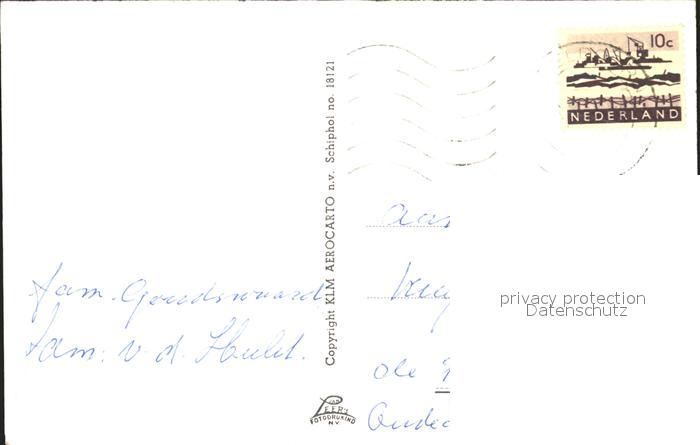 10c
NEDERLAND
Copyright KLM AEROCARTO n.v. Schiphol no. 18121
Aan
fam. Goudswaard
fam: v. d. Hulst.
de
privacy protection
Datenschutz
LEER'S
FOTODRUKIND
N.V.